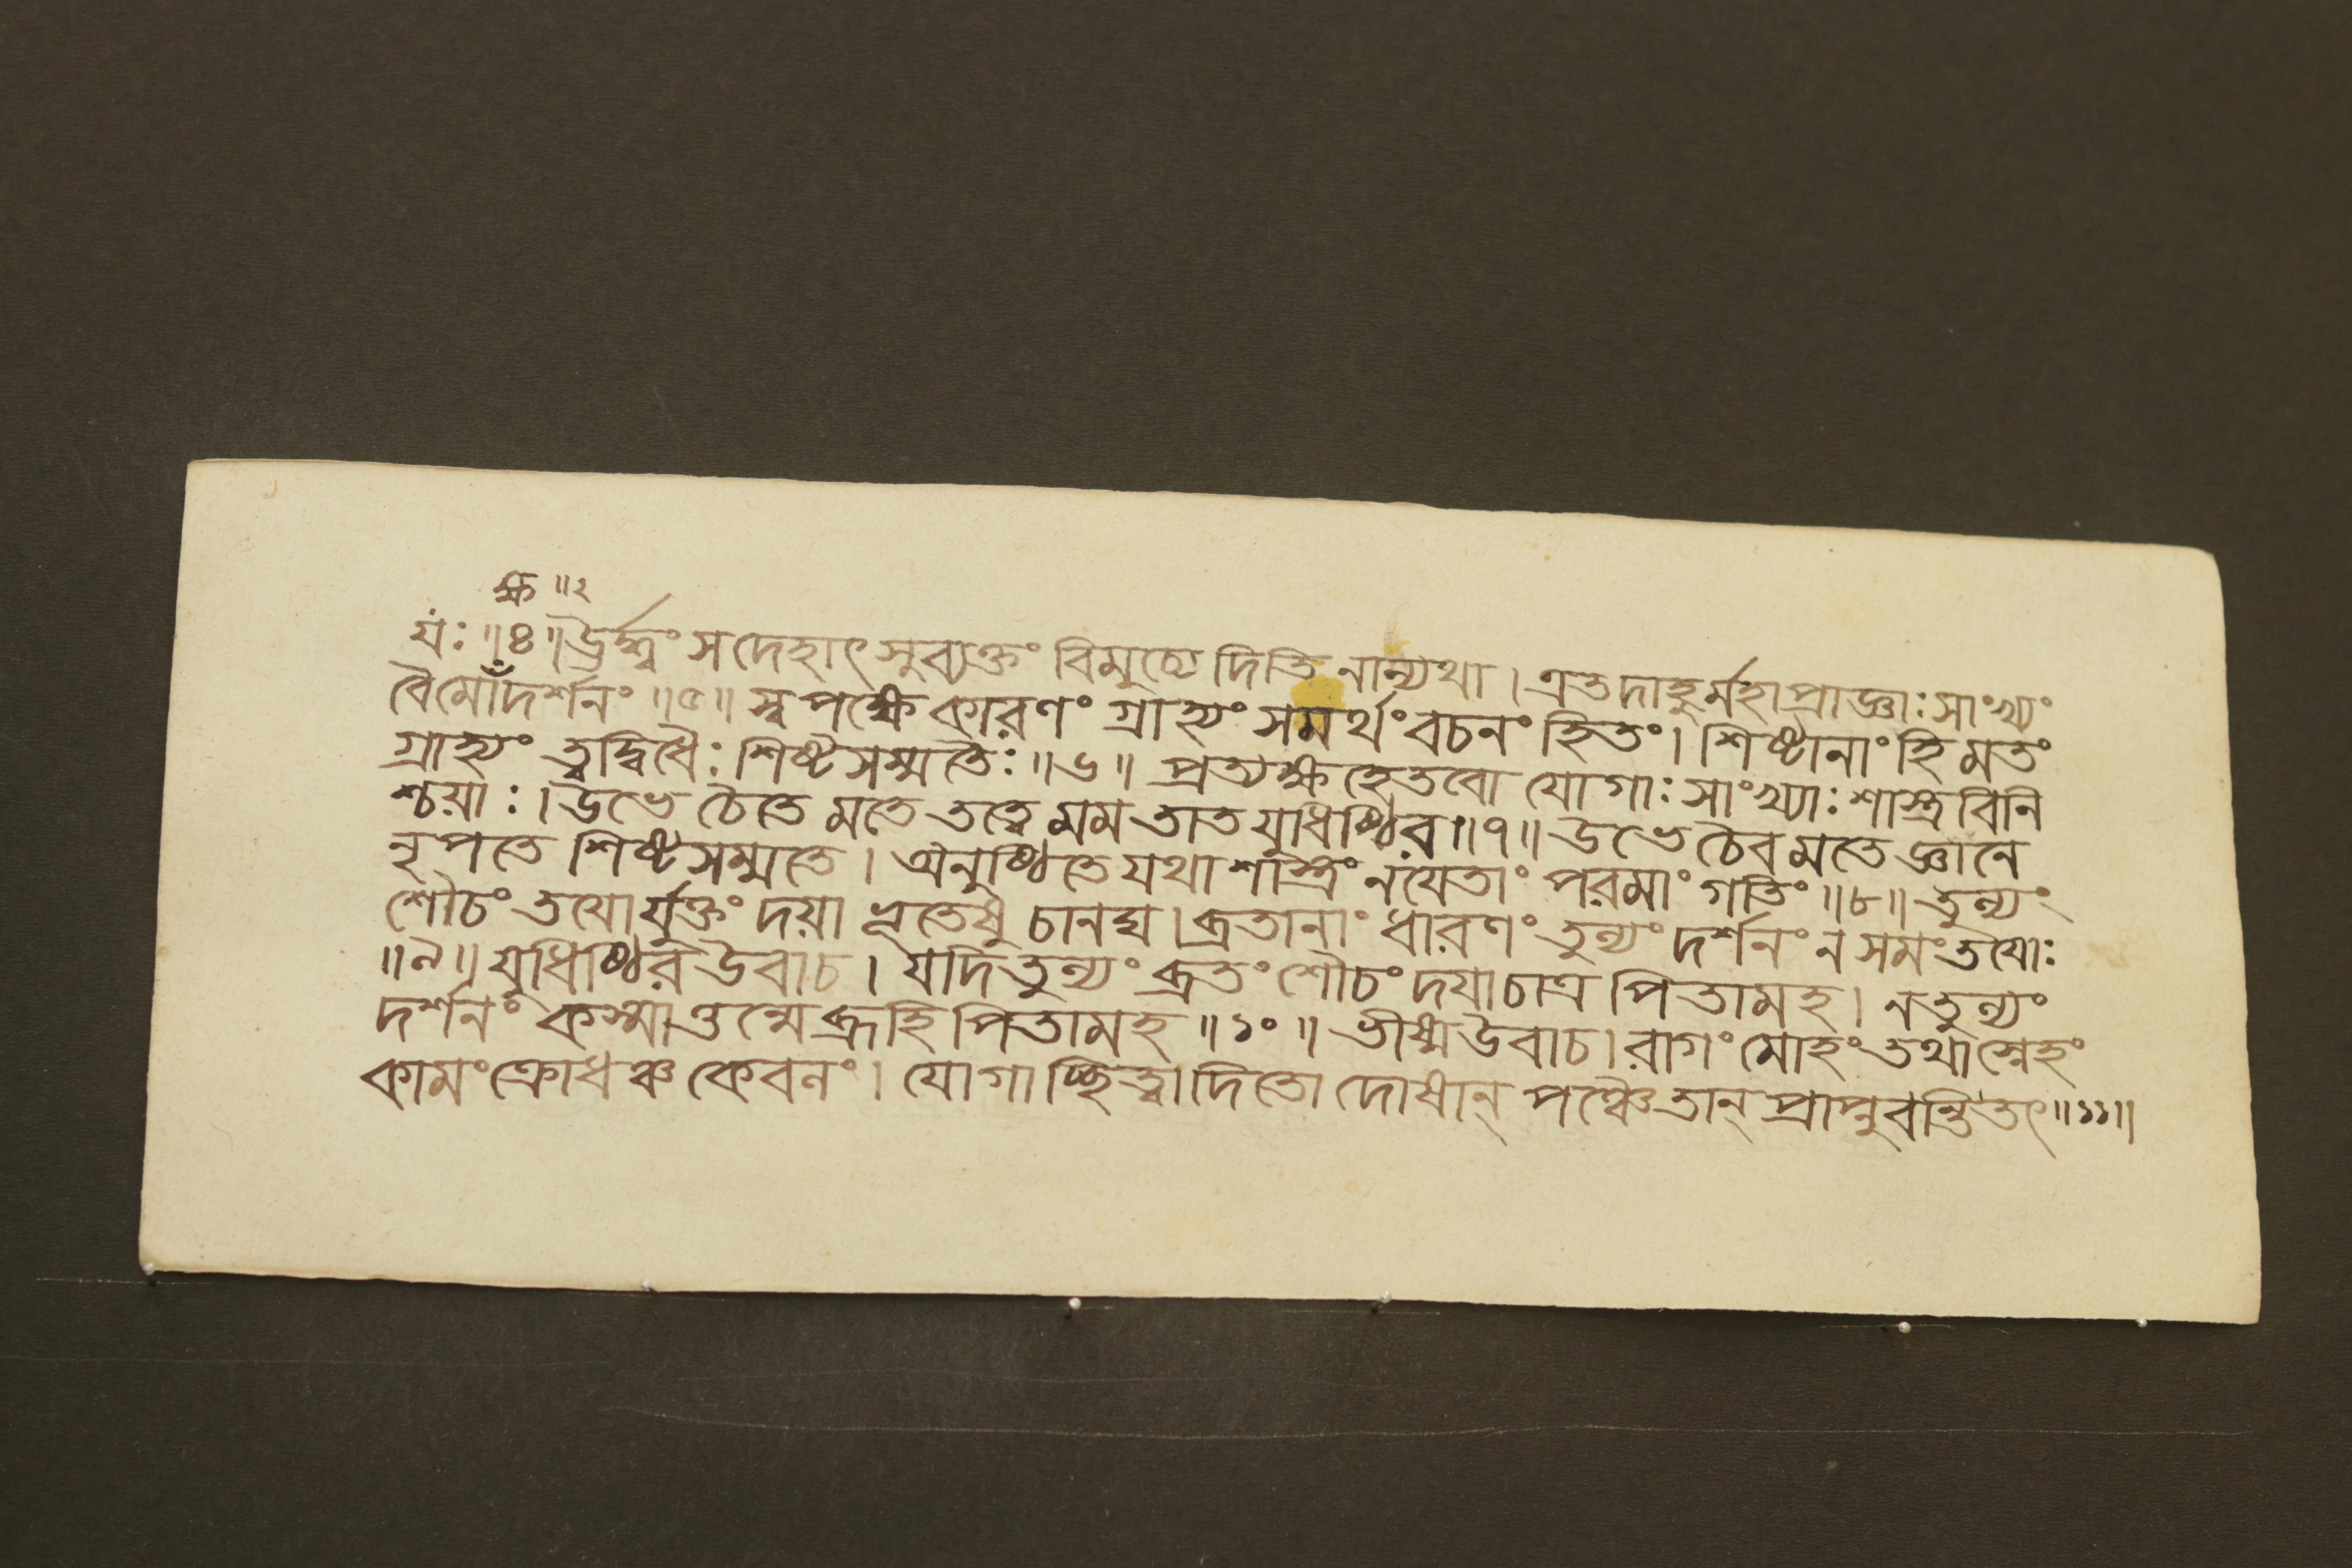 ক্ষ ॥২
যঃ ॥৪॥ ঊর্দ্ধ্বং স দেহাৎ সুব্যক্তং বিমুচ্যেদিতি নান্যথা । এতদাহুর্মহাপ্রাজ্ঞাঃ সাংখ্যং
বৈ মোদর্শনং ॥৫॥ স্বপক্ষে কারণং গ্রাহ্যং সমর্থং বচনং হিতং । শিষ্টানাং হি মতং
গ্রাহ্যং ত্বদ্বিধৈঃ শিষ্টসম্মতৈঃ ॥৬॥ প্রত্যক্ষহেতবো যোগাঃ সাংখ্যাঃ শাস্ত্রবিনি
শ্চয়াঃ । উভে চৈতে মতে তত্ত্বে মম তাত যুধিষ্ঠির ॥৭॥ উভে চৈব মতে জ্ঞানে
নৃপতে শিষ্টসম্মতে । অনুষ্ঠিতে যথাশাস্ত্রং নয়েতাং পরমাং গতিং ॥৮॥ তুল্যং
শৌচং তযোর্যুক্তং দয়া ভূতেষু চানঘ । ব্রতানাং ধারণং তুল্যং দর্শনং ন সমং তযোঃ
॥৯॥ যুধিষ্ঠির উবাচ । যদি তুল্যং ব্রতং শৌচং দয়া চাত্র পিতামহ । ন তুল্যং
দর্শনং কস্মাত্তন্মে ব্রূহি পিতামহ ॥১০॥ ভীষ্ম উবাচ । রাগং মোহং তথা স্নেহং
কামং ক্রোধঞ্চ কেবলং । যোগাচ্ছিত্ত্বাদিতো দোষান্ পঞ্চৈতান্ প্রাপ্নুবন্তি তৎ ॥১১॥